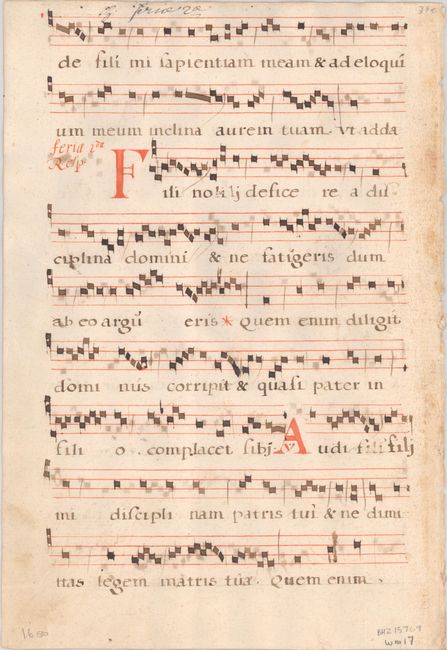 de fili mi sapientiam meam & ad eloqui
um meum inclina aurem tuam. Vt adda
feria 2da
Resp
Fili noli lj defice re a dis-
ciplina domini & ne fatigeris dum
ab eo argū eris * Quem enim diligit
domi nus corripit & quasi pater in
fili o. complacet sibj. Audi fili filj
V
mi discipli nam patris tui & ne dimi
ttas legem matris tuæ. Quem enim.
1600
BHZ15769
wm17